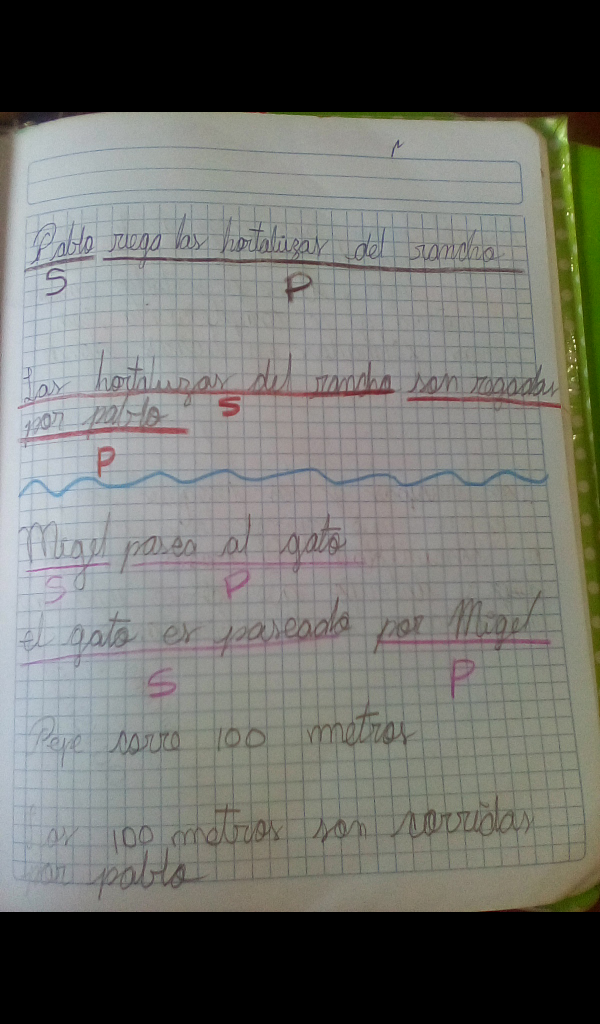 Pablo riega las hortalizas del rancho
S P
Las hortalizas del rancho son regadas
por pablo
S
P
Migel pasea al gato
S P
el gato es paseado por Migel
S P
Pepe corre 100 metros
Los 100 metros son corridos
por pablo